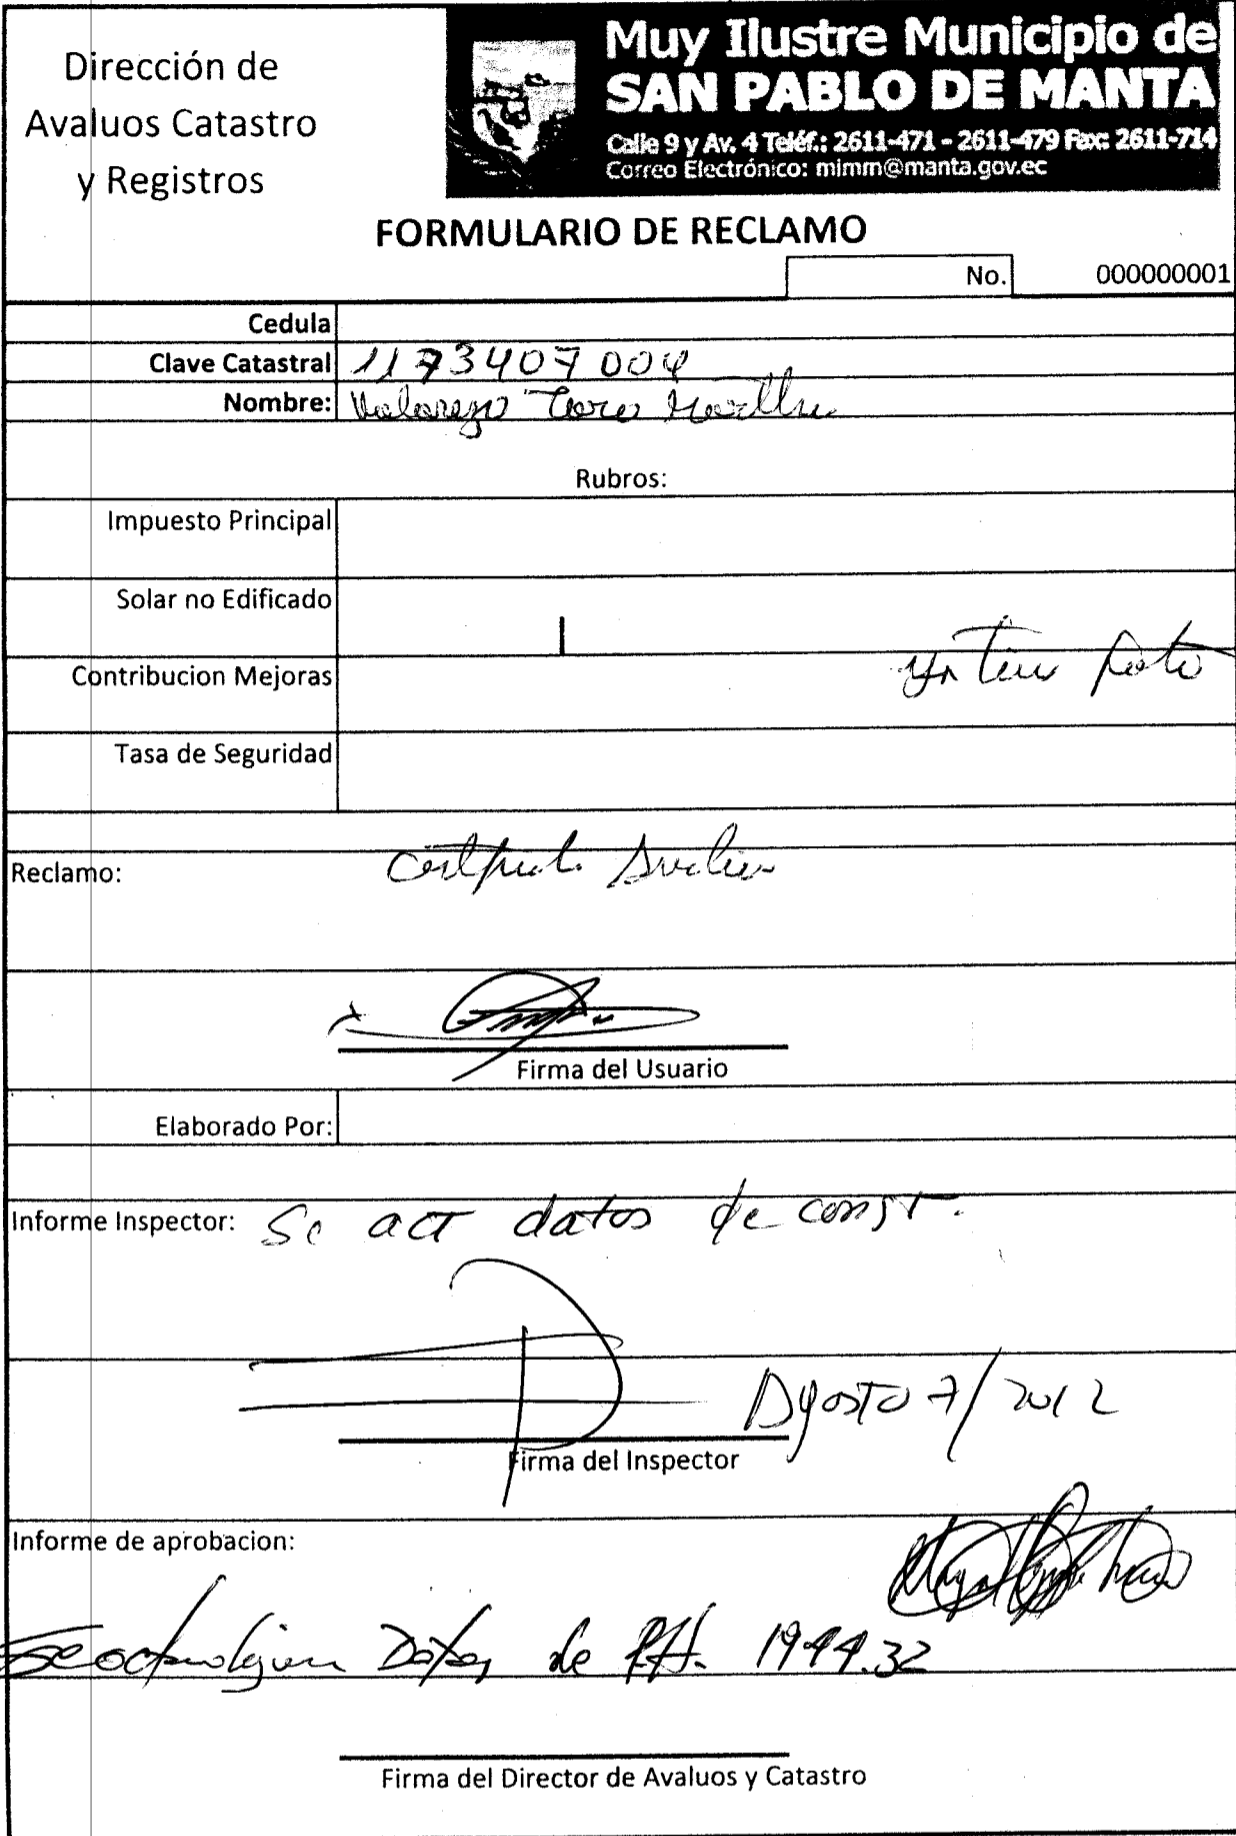 Dirección de
Avaluos Catastro
y Registros
Muy Ilustre Municipio de
SAN PABLO DE MANTA
Calle 9 y Av. 4 Teléf.: 2611-471 - 2611-479 Fax: 2611-714
Correo Electrónico: mimm@manta.gov.ec
FORMULARIO DE RECLAMO
No. 000000001
Cedula
Clave Catastral 1173407004
Nombre:
Rubros:
Impuesto Principal
Solar no Edificado
Contribucion Mejoras
Tasa de Seguridad
Reclamo:
Firma del Usuario
Elaborado Por:
Informe Inspector: Se act datos de const.
Agosto 7/2012
Firma del Inspector
Informe de aprobacion:
Datos de P.H. 1944.32
Firma del Director de Avaluos y Catastro